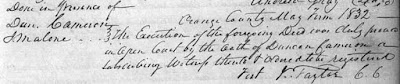 Done in presence of
Dun. Cameron Orange County May Term 1832
J Malone The Execution of the foregoing Deed was duly proved
in open Court by the Oath of Duncan Cameron a
Subscribing Witness thereto & ordered to be registered
Test J. Taylor C. C.